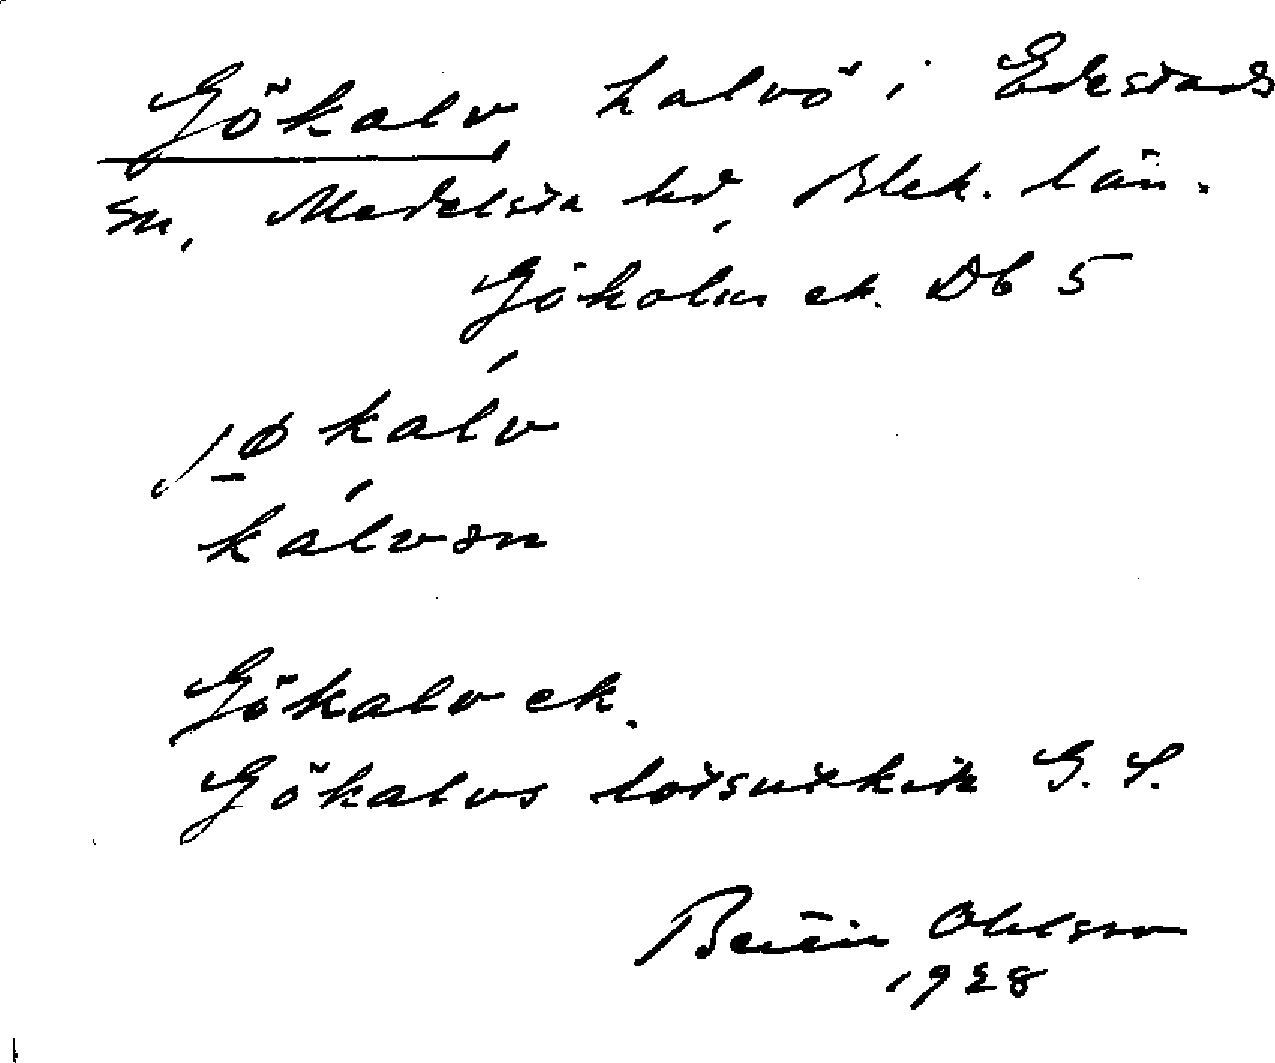 Gökalv, halvö i Edestads
sn, Medelsta hd, Blek. län.
Gökalv ek. Db 5
jø kalv
kalvən
Gökalv ek.
Gökalvs lotsutkik G. S.
Bertil Ohlsson
1928